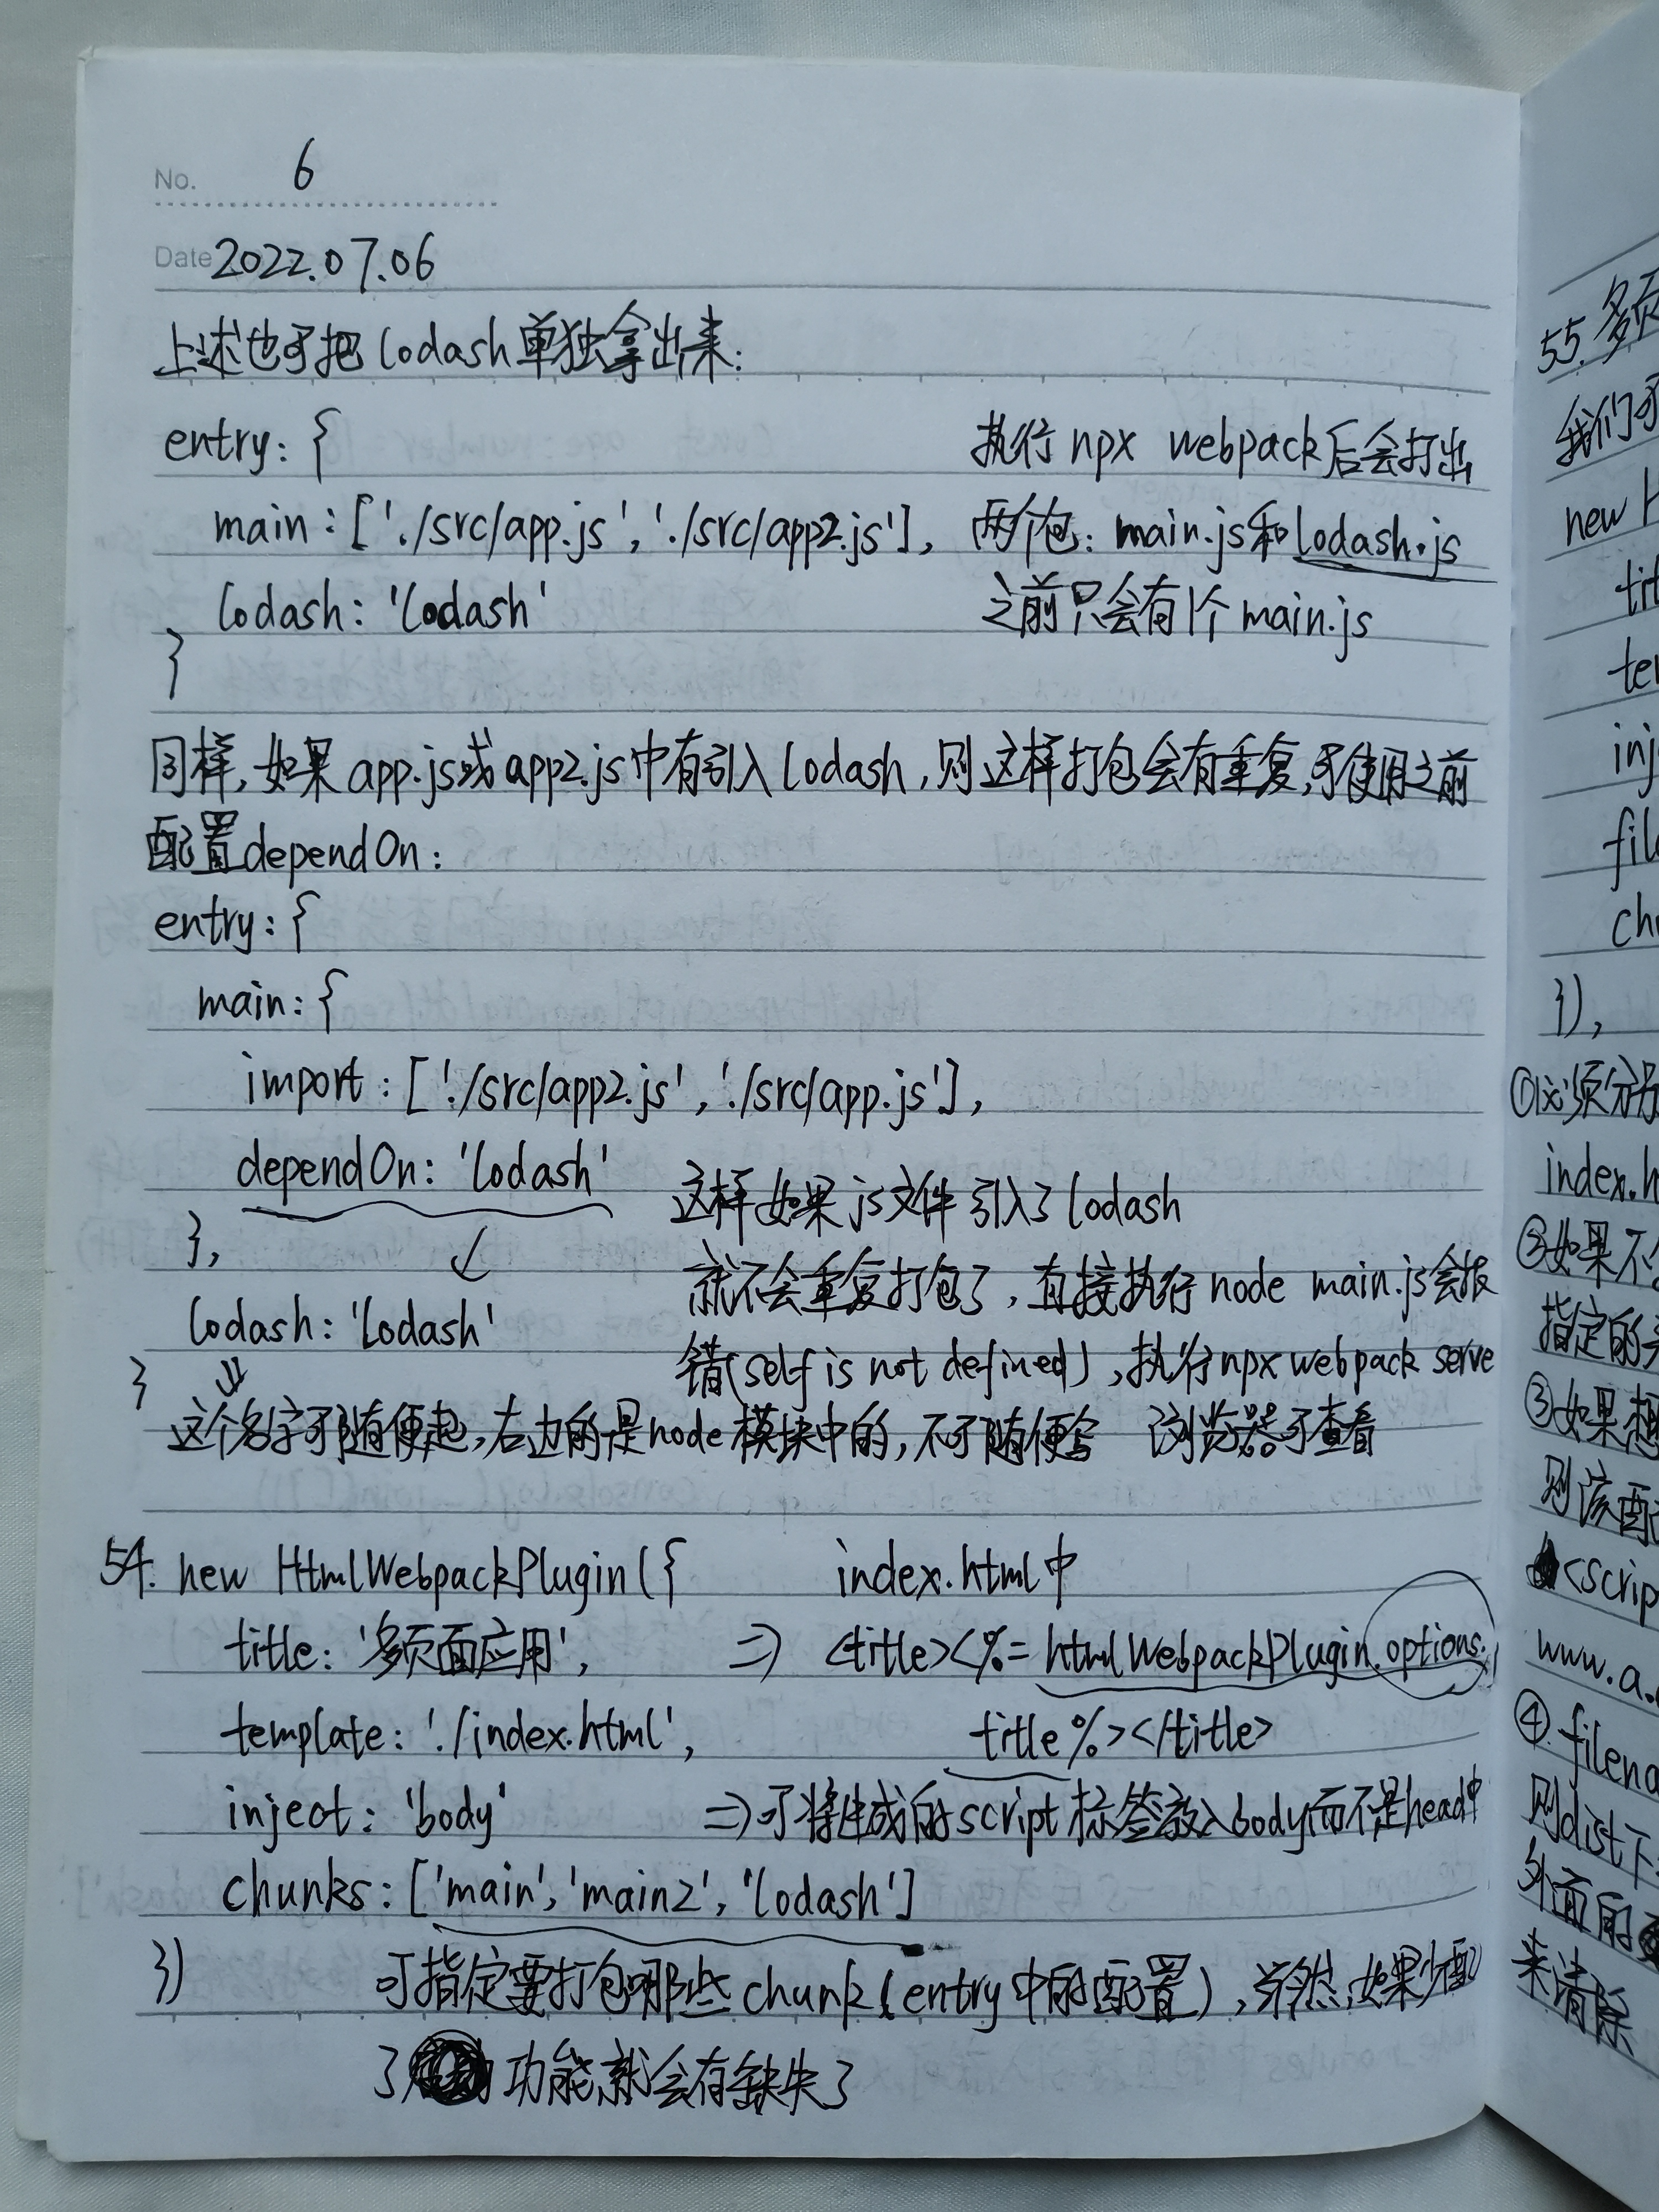 No. 6
Date 2022.07.06
上述也可把lodash单独拿出来:
entry: {
main: ['./src/app.js', './src/app2.js'],
lodash: 'lodash'
}
执行 npx webpack后会打出
两个包: main.js和lodash.js
之前只会有1个 main.js
同样,如果app.js或app2.js中有引入lodash,则这样打包会有重复,可使用之前
配置dependOn:
entry: {
main: {
import: ['./src/app2.js', './src/app.js'],
dependOn: 'lodash'
},
lodash: 'lodash'
}
这样如果js文件引入了lodash
就不会重复打包了,直接执行node main.js会报
错(self is not defined),执行npx webpack serve
浏览器可查看
这个名字可随便起,右边的是node模块中的,不可随便写
54. new HtmlWebpackPlugin({
index.html中
title: '多页面应用', => <title><%= htmlWebpackPlugin.options.
template: './index.html', title%></title>
inject: 'body' =>可将生成的script标签放入body而不是head中
chunks: ['main', 'main2', 'lodash']
})
可指定要打包哪些chunk(entry中的配置),当然,如果少配
了功能就会有缺失了
55. 多页
我们可
new H
tit
te
inj
file
ch
}),
①必须分别
index.h
②如果不
指定的
③如果想
则该配
<scrip
www.a.
④filena
则dist下
外面的
来清除